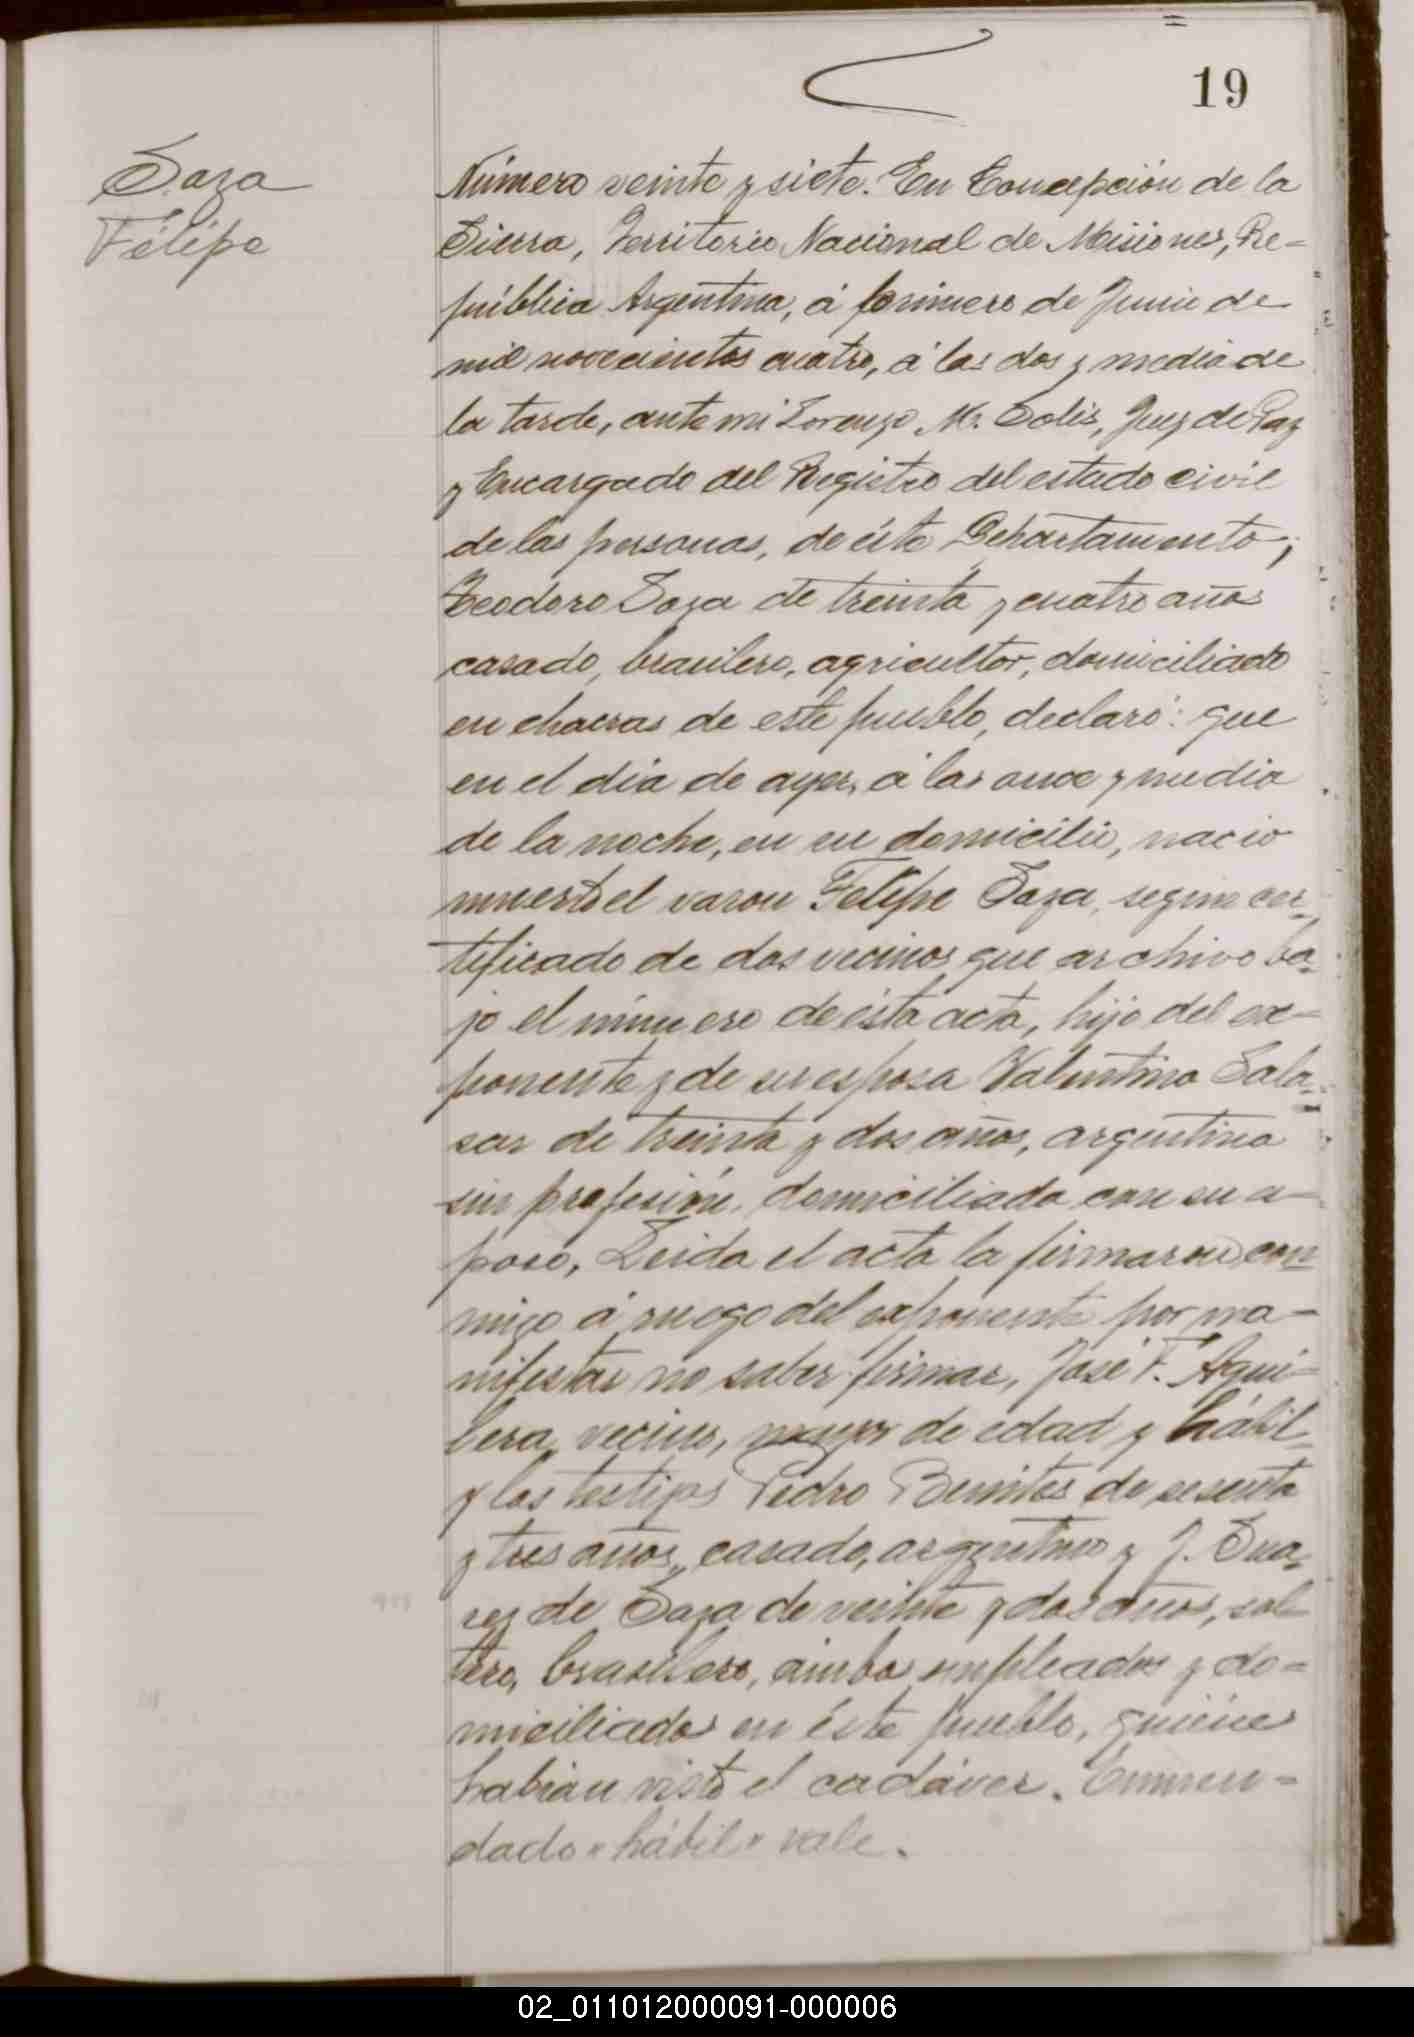 19
Saza
Felipe
Número veinte y siete. En Concepción de la
Sierra, Territorio Nacional de Misiones, Re-
pública Argentina, á primero de Junio de
mil novecientos cuatro, á las dos y media de
la tarde, ante mi Lorenzo M. Solis, Juez de Paz
y Encargado del Registro del estado civil
de las personas, de éste Departamento;
Teodoro Saza de treinta y cuatro años
casado, brasilero, agricultor, domiciliado
en chacras de este pueblo, declaró: que
en el dia de ayer, á las once y media
de la noche, en su domicilio, nacio
muerto el varon Felipe Saza, segun cer-
tificado de dos vecinos que archivo ba-
jo el número de ésta acta, hijo del ex-
ponente y de su esposa Valentina Sala-
sar de treinta y dos años, argentina
sin profesión, domiciliada con su es-
poso. Leida el acta la firmaron con-
migo á ruego del exponente por ma-
nifestar no saber firmar, José F. Agui-
lera, vecino, mayor de edad y hábil
y los testigos Pedro Benites de sesenta
y tres años, casado, argentino y J. Sua-
rez de Saza de veinte y dos años, sol-
tero, brasilero, ambos empleados y do-
miciliados en éste pueblo, quiénes
habian visto el cadáver. Enmen-
dado "hábil" vale.
02_011012000091-000006